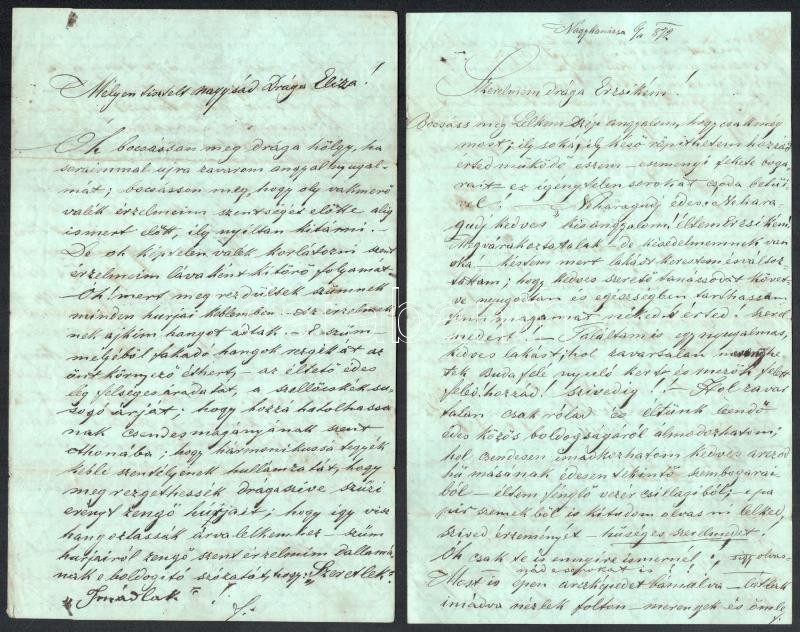 Mélyen tisztelt nagysád Drága Eliza!
Oh bocsásson meg drága hölgy, ha
soraimmal ujra zavarom angyali nyugal-
mát; bocsásson meg, hogy oly vakmerő
valék érzelmeim szentségét előtte alig
ismert előtt, ily nyiltan kitárni.
De oh képtelen valék korlátozni szent
érzelmeim lávaként kitörő folyamát
Oh! mert meg rezdültek szivemnek
minden hurjai kellemben az érzelmek-
nek ajkim hangot adtak. — E szüm
mélyiből fakadó hangok rezgék át az
űrt környező éthert, az éltető édes
lég felséges áradatát, a szellőcskék su-
sogó árját; hogy hozzá hatolhassa
nak csendes magányának szent
otthonába; hogy harmonikussá tegyék
keble szentélyének hullámzatát, hogy
meg rezgethessék drága szive szűzi
erényt zengő hurjait; hogy igy visz
hangozlassák árva lelkemhez — szüm
hurjairól zengő szent érzelmim dallamá-
nak e boldogitó szózatát, hogy: "Szeretlek"
"Imádlak"!
Nagykanizsa 872
Szerelmem drága Erzsikém!
Bocsáss meg Lelkem szép angyalom, hogy csak még
most; ily soká, ily késő röpithetem hozzád
érted működő eszem — eseményi fekete boga-
rait — ez igénytelen sorokat csoda betűi-
vel! — Ne haragudj édes! Ne hara-
gudj kedves kis angyalom! éltem Erzsikém!
Megvárakoztatalak — de késedelmemnek van
oka! — késtem mert lakást kerestem és válasz-
tottam; hogy kedves szerető tanácsodat követ-
ve nyugodtan és egészségben tarthassam
fenn magamat néked és érted! szerel-
medért! — Találtam is egy nyugalmas,
kedves lakást, hol zavartalan
tek Budafelé nyuló kert és mezők felett
feléd, hozzád! szivedig!! — Hol zavar
talan csak rólad és éltünk leendő
édes közös boldogságáról álmodozhatom;
hol csendesen imádkozhatom kedves arczod
hű másának édesen tekintő szembogarai-
ból — éltem fénylő vezér csillagiból; e pa
pir szemekből is kitudom olvasni lelked,
szived érzeményét — hűséges szerelmedet!
Oh csak te is ennyire ismernél! igy olvas-
nád e sorokat is!
Most is épen arczképedet bámulva —
imádva nézlek folton — merengek és ömle